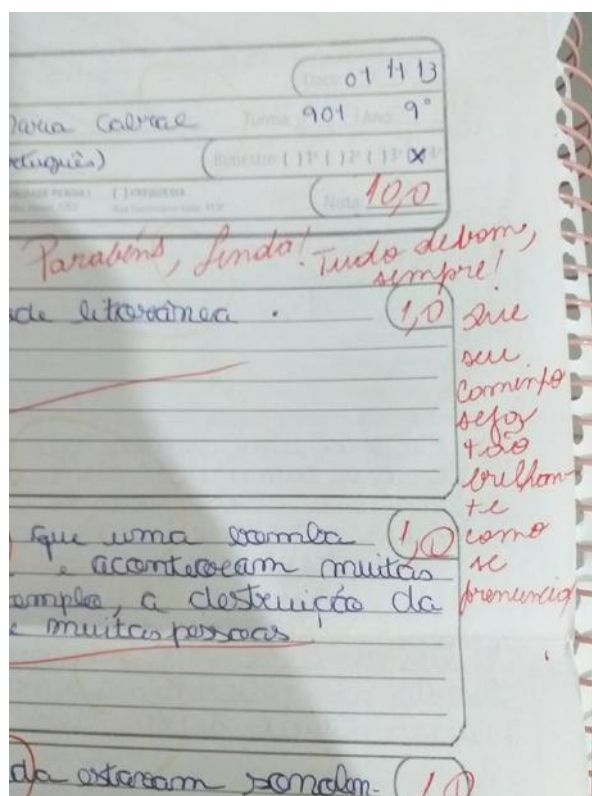 Data: 01 11 13
Maria Cabral Turma: 901 Ano: 9°
Português) Bimestre: ( ) 1º ( ) 2º ( ) 3º (X) 4º
( ) FREGUESIA
Nota: 10,0
Parabéns, linda! Tudo de bom,
sempre!
de litorânea . 1,0
Que
seu
caminho
seja
tão
brilhan-
te
como
se
prenuncia
que uma bomba 1,0
e aconteceram muitas
a destruição da
e muitas pessoas
da estavam 1,0